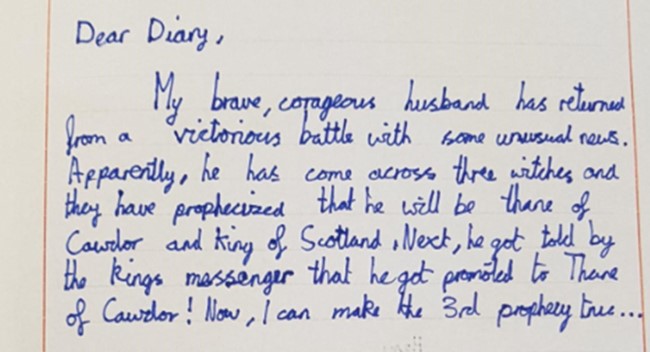 Dear Diary,
My brave, corageous husband has returned
from a victorious battle with some unusual news.
Apparently, he has come across three witches and
they have prophecized that he will be thane of
Cawdor and King of Scotland. Next, he got told by
the kings messenger that he got promoted to Thane
of Cawdor! Now, I can make the 3rd prophecy true...